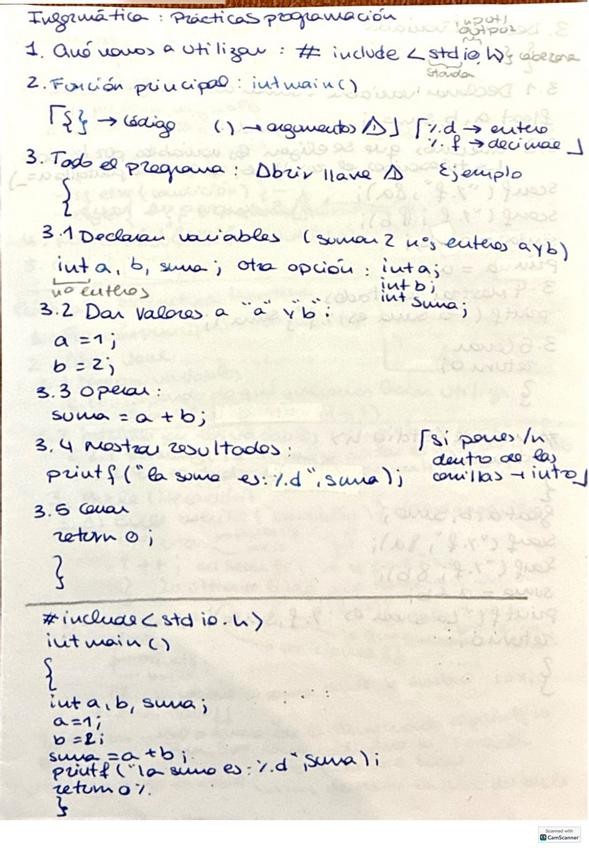 Informática : Prácticas programación
input/
output
1. Qué vamos a utilizar : # include < stdio.h > } cabecera
Standa
2. Función principal : int main ( )
⌈{ } → código ( ) → argumentos ⚠⌋ ⌈%d → entero
%f → decimal⌋
3. Todo el programa : Abrir llave ⚠ Ejemplo
{
3.1 Declarar variables (sumar 2 nºs enteros a y b)
int a, b, suma ; otra opción : int a;
int b;
no enteros
int suma;
3.2 Dar valores a "a" y "b":
a = 1;
b = 2;
3.3 Operar:
suma = a + b;
3.4 Mostrar resultados:
⌈Si pones /n
dentro de las
printf ("la suma es: %d", suma); comillas → intro⌋
3.5 Cerrar
return 0;
}
#include < stdio.h >
int main ( )
{
int a, b, suma;
a=1;
b=2;
suma = a + b;
printf ("la suma es: %d", suma);
return 0%.
}
Scanned with
CamScanner